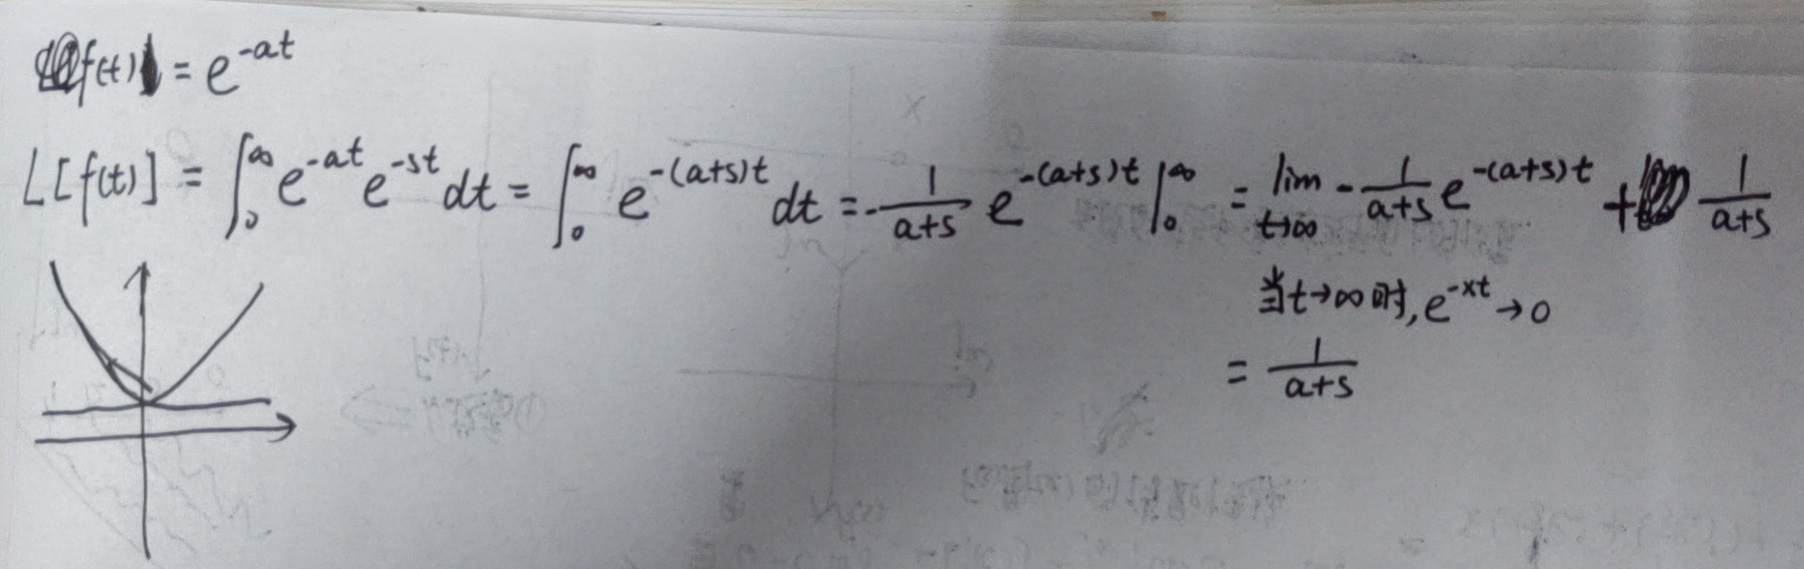 f(t) = e^{-at}
L[f(t)] = ∫_0^∞ e^{-at} e^{-st} dt = ∫_0^∞ e^{-(a+s)t} dt = -\frac{1}{a+s} e^{-(a+s)t} |_0^∞ = \lim_{t→∞} -\frac{1}{a+s} e^{-(a+s)t} + \frac{1}{a+s}
当t→∞时, e^{-xt} → 0
= \frac{1}{a+s}